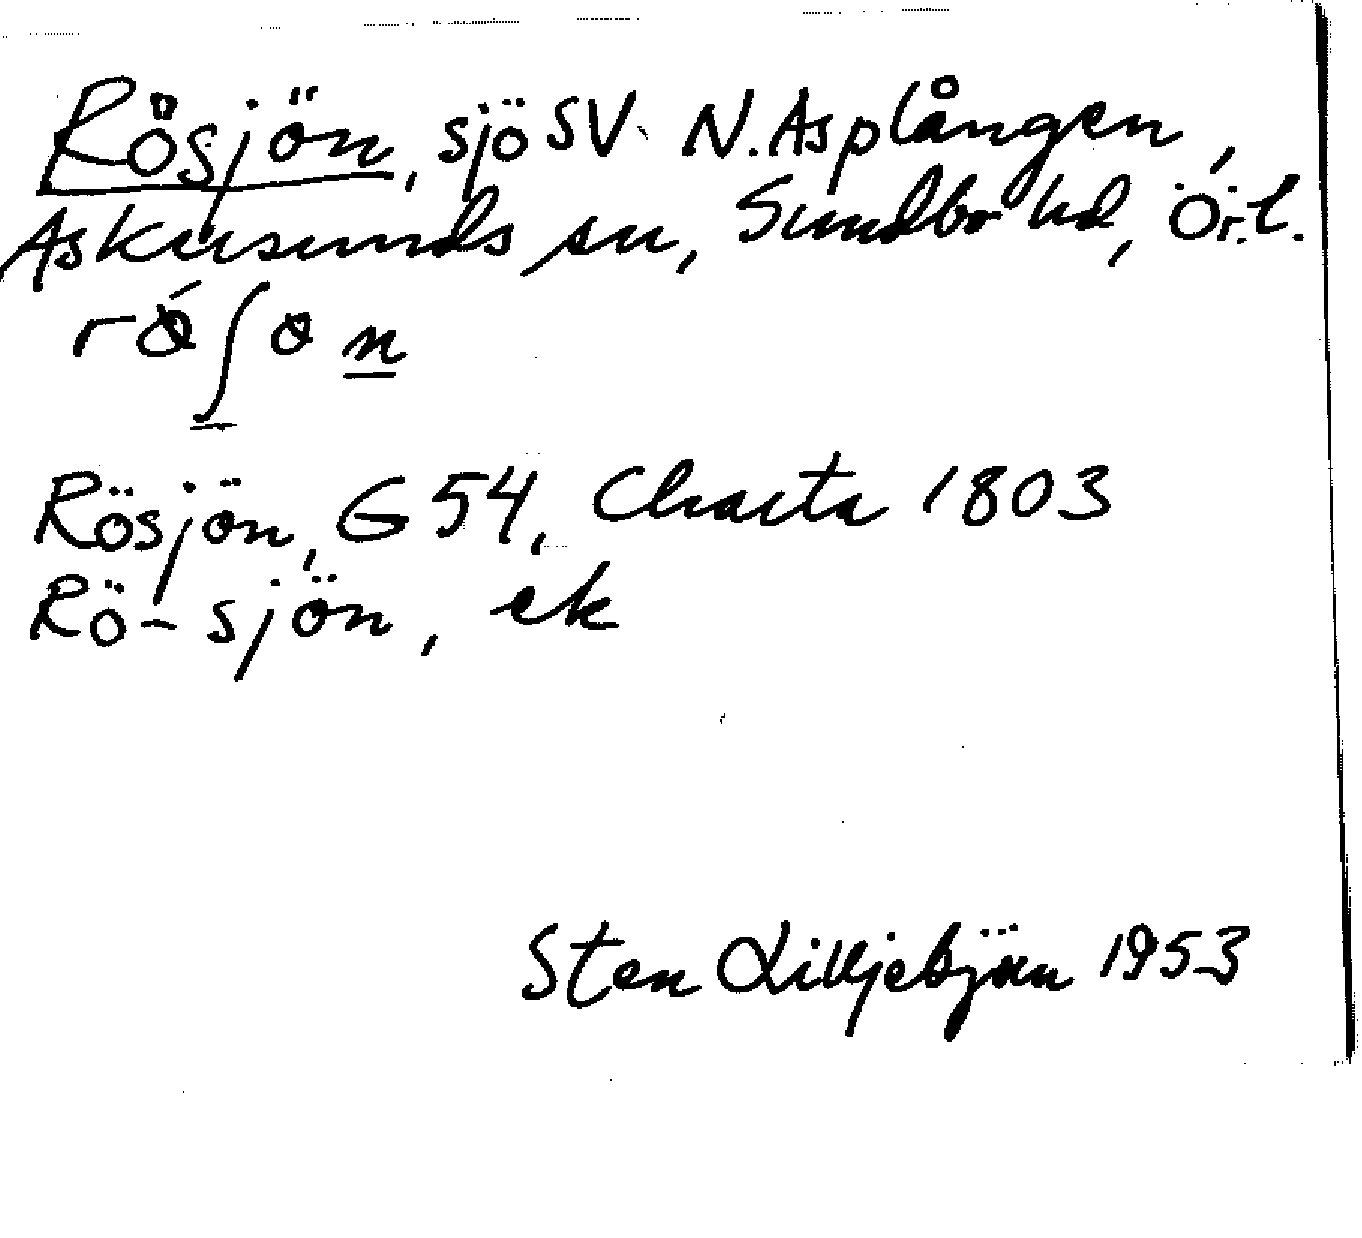 Rösjön, sjö SV N. Asplången,
Askersunds sn, Sundbo hd, Ör.l.
Rösjön, G 54, Charta 1803
Rö-sjön, ek
Sten Lilljebjörn 1953